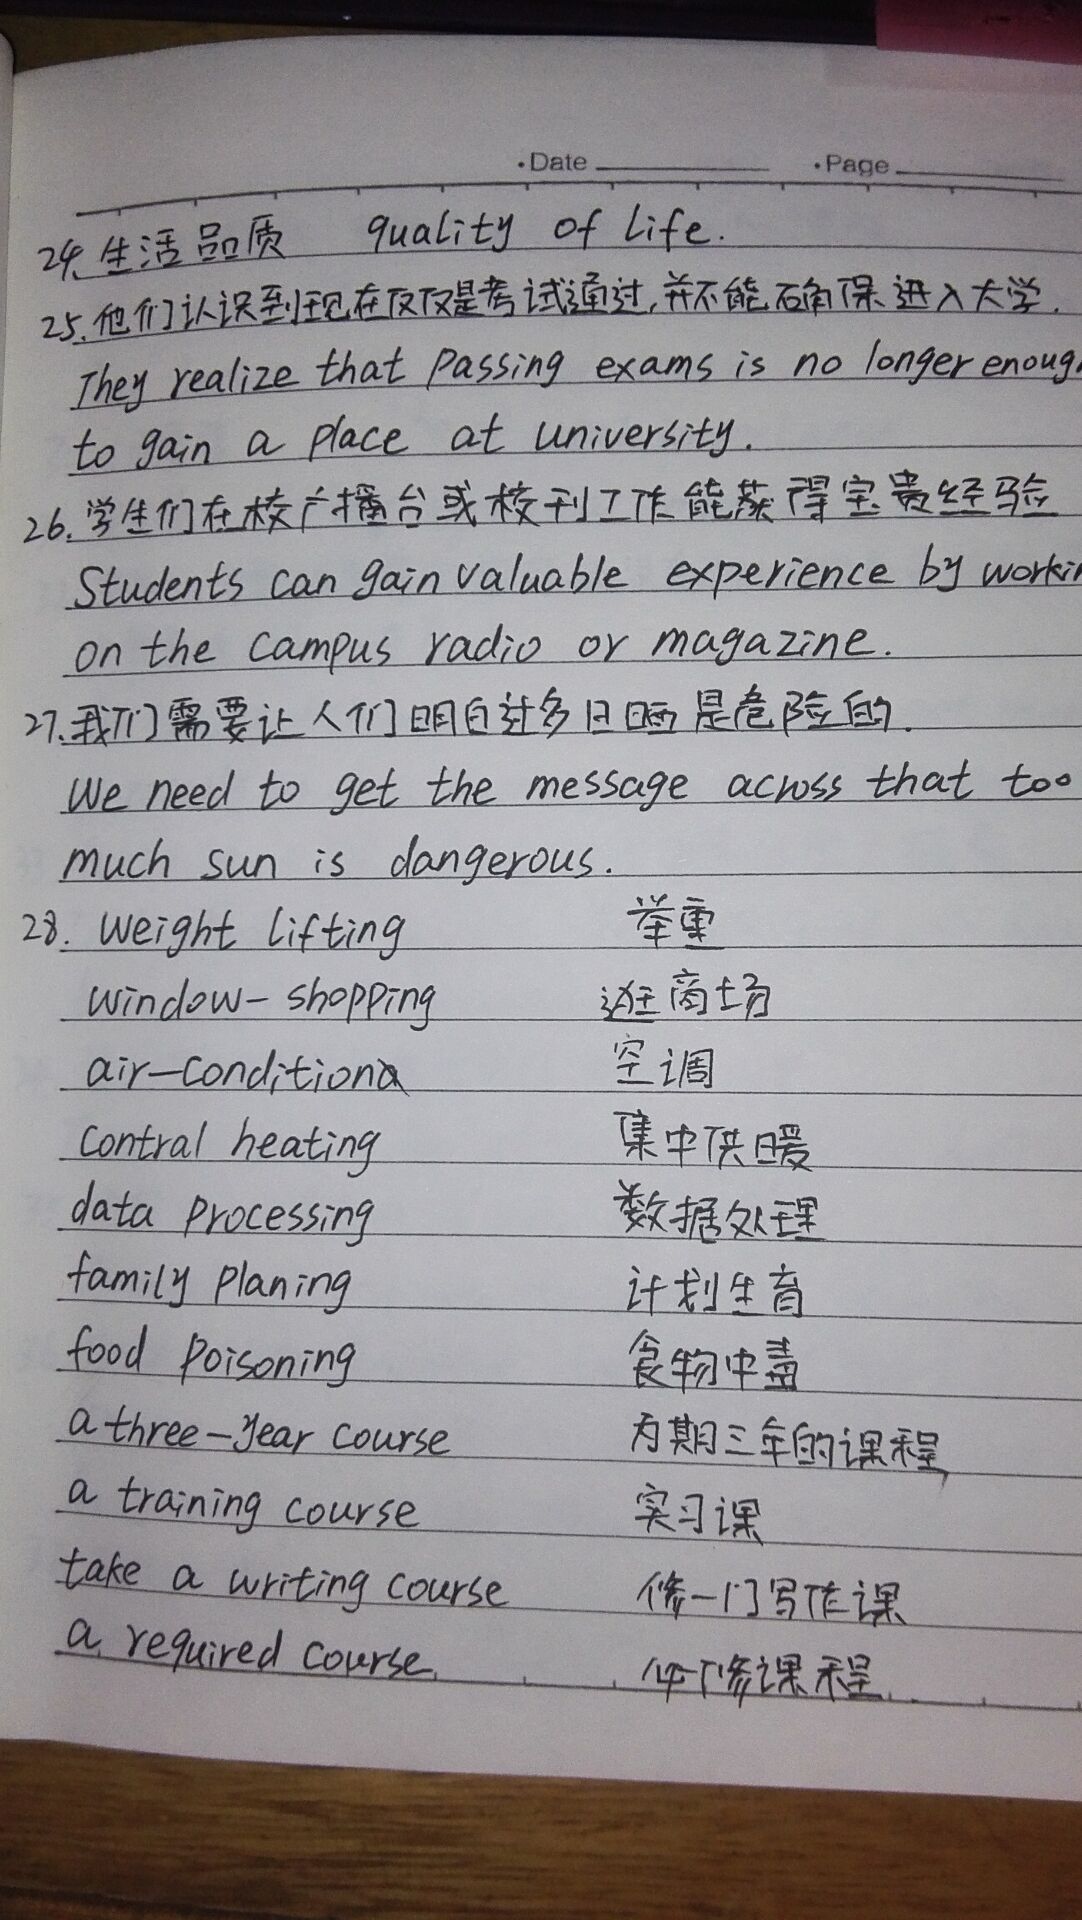 ·Date ·Page
24.生活品质 quality of life.
25.他们认识到现在仅仅是考试通过,并不能确保进入大学.
They realize that passing exams is no longer enoug
to gain a place at university.
26.学生们在校广播台或校刊工作能获得宝贵经验
Students can gain valuable experience by workin
on the campus radio or magazine.
27.我们需要让人们明白过多日晒是危险的.
We need to get the message across that too
much sun is dangerous.
28. weight lifting 举重
window-shopping 逛商场
air-condition 空调
contral heating 集中供暖
data processing 数据处理
family planing 计划生育
food poisoning 食物中毒
a three-year course 为期三年的课程
a training course 实习课
take a writing course 修一门写作课
a required course 修课程